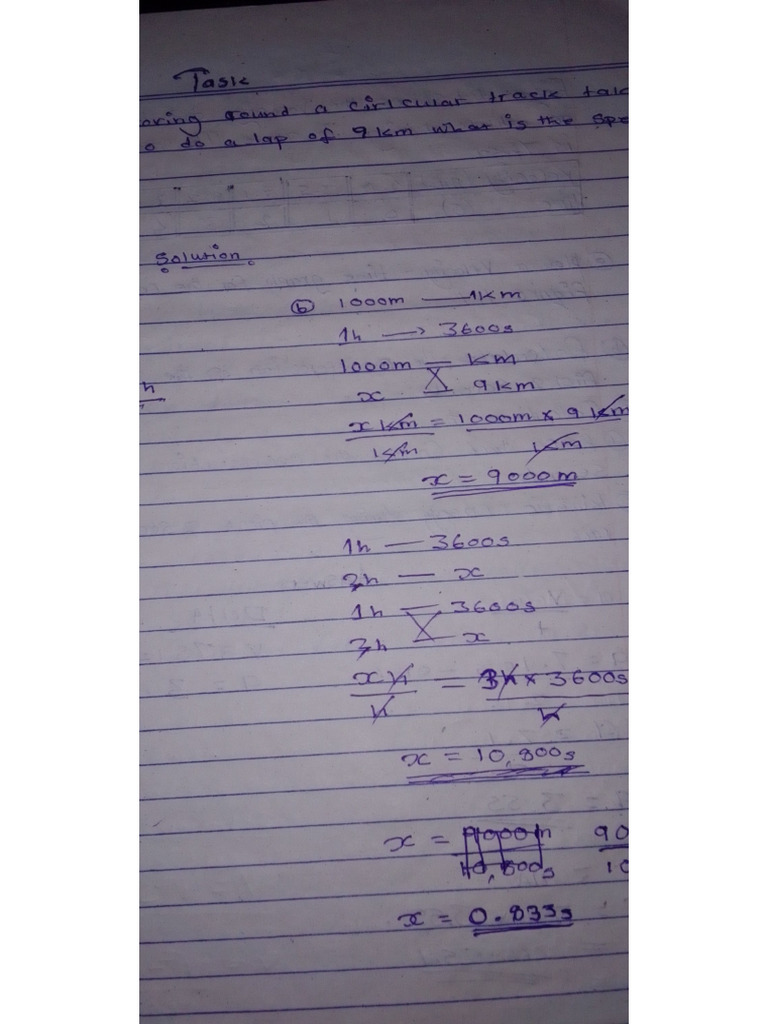 Task
oving round a cirlcular track tak
o do a lap of 9 km what is the Spe
Solution
h
(b) 1000m — 1km
1h → 3600s
1000m — km
x 9km
x km = 1000m x 9 km
km 1km
x = 9000m
1h — 3600s
3h — x
1h — 3600s
3h — x
x h = 3h x 3600s
h h
x = 10,800s
x = 9000m 90
10,800s 10
x = 0.833s